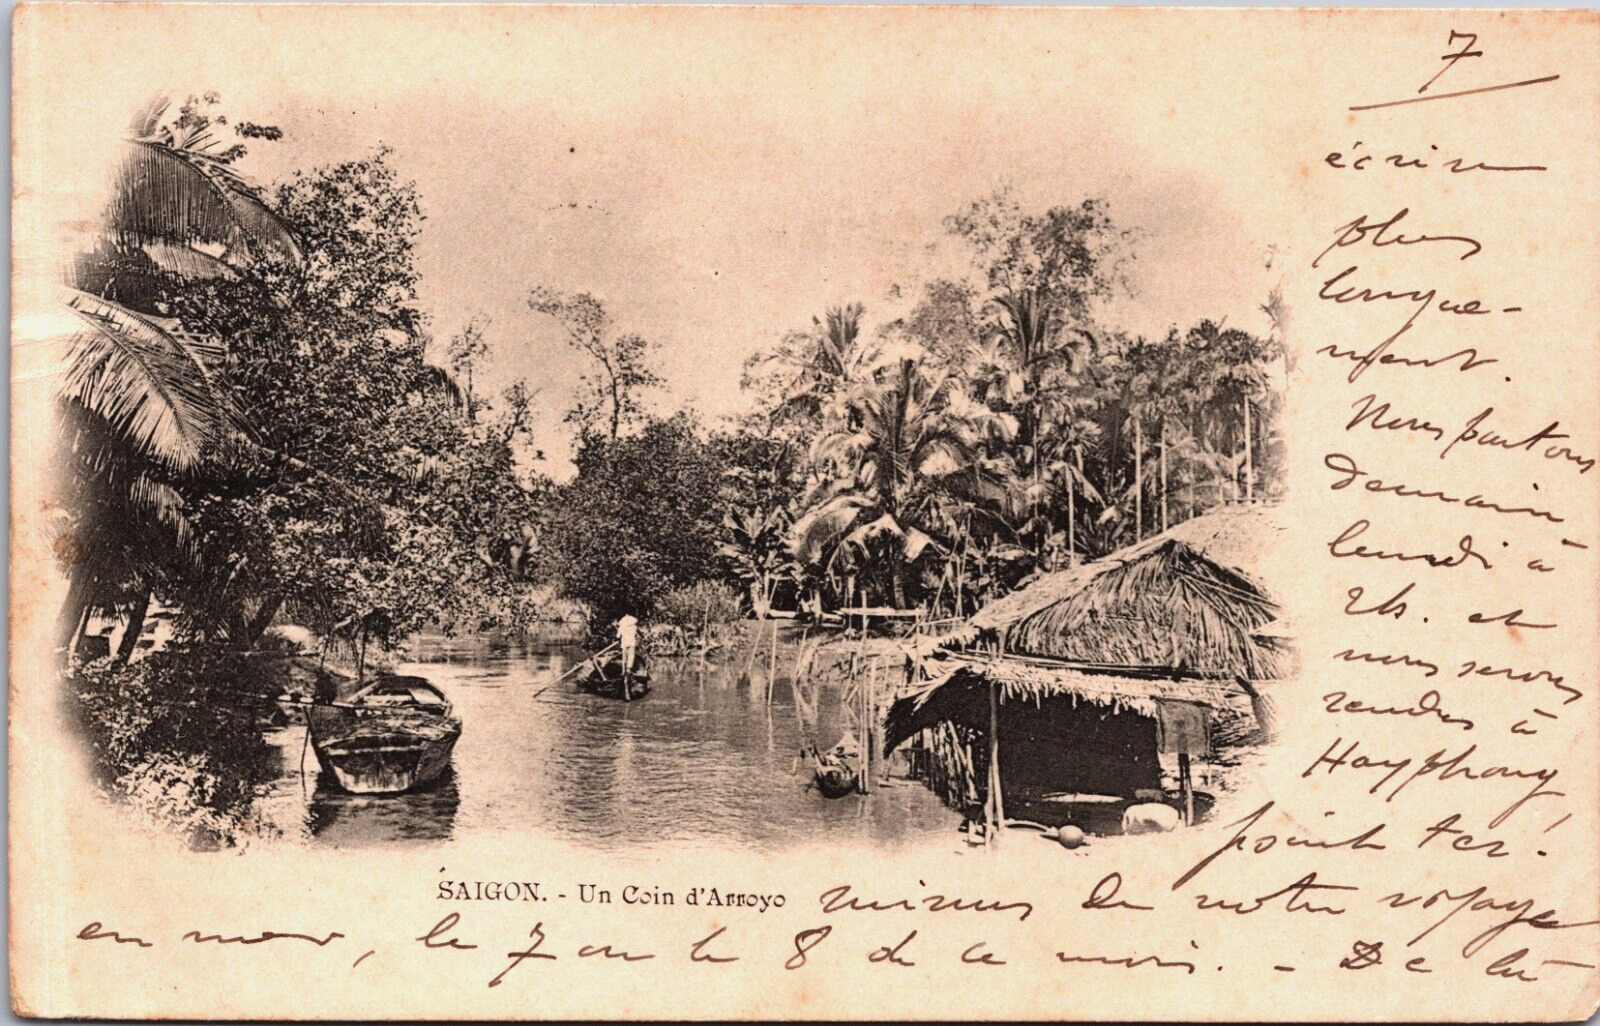 7
écrire
plus
longue-
ment.
Nous partons
demain
lundi à
2h. et
nous serons
rendus à
Hayphong,
point ter-
SAIGON. - Un Coin d'Arroyo
minus de notre voyage
en mer, le 7 ou le 8 de ce mois. - De là